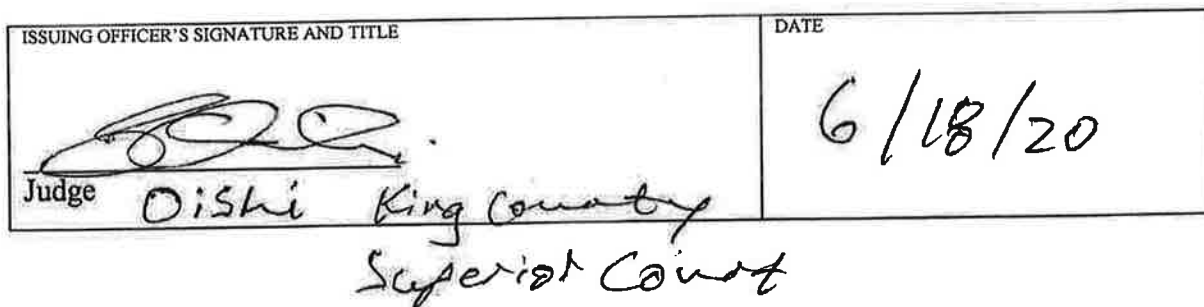 ISSUING OFFICER'S SIGNATURE AND TITLE
DATE
6/18/20
Judge Oishi King County
Superior Court